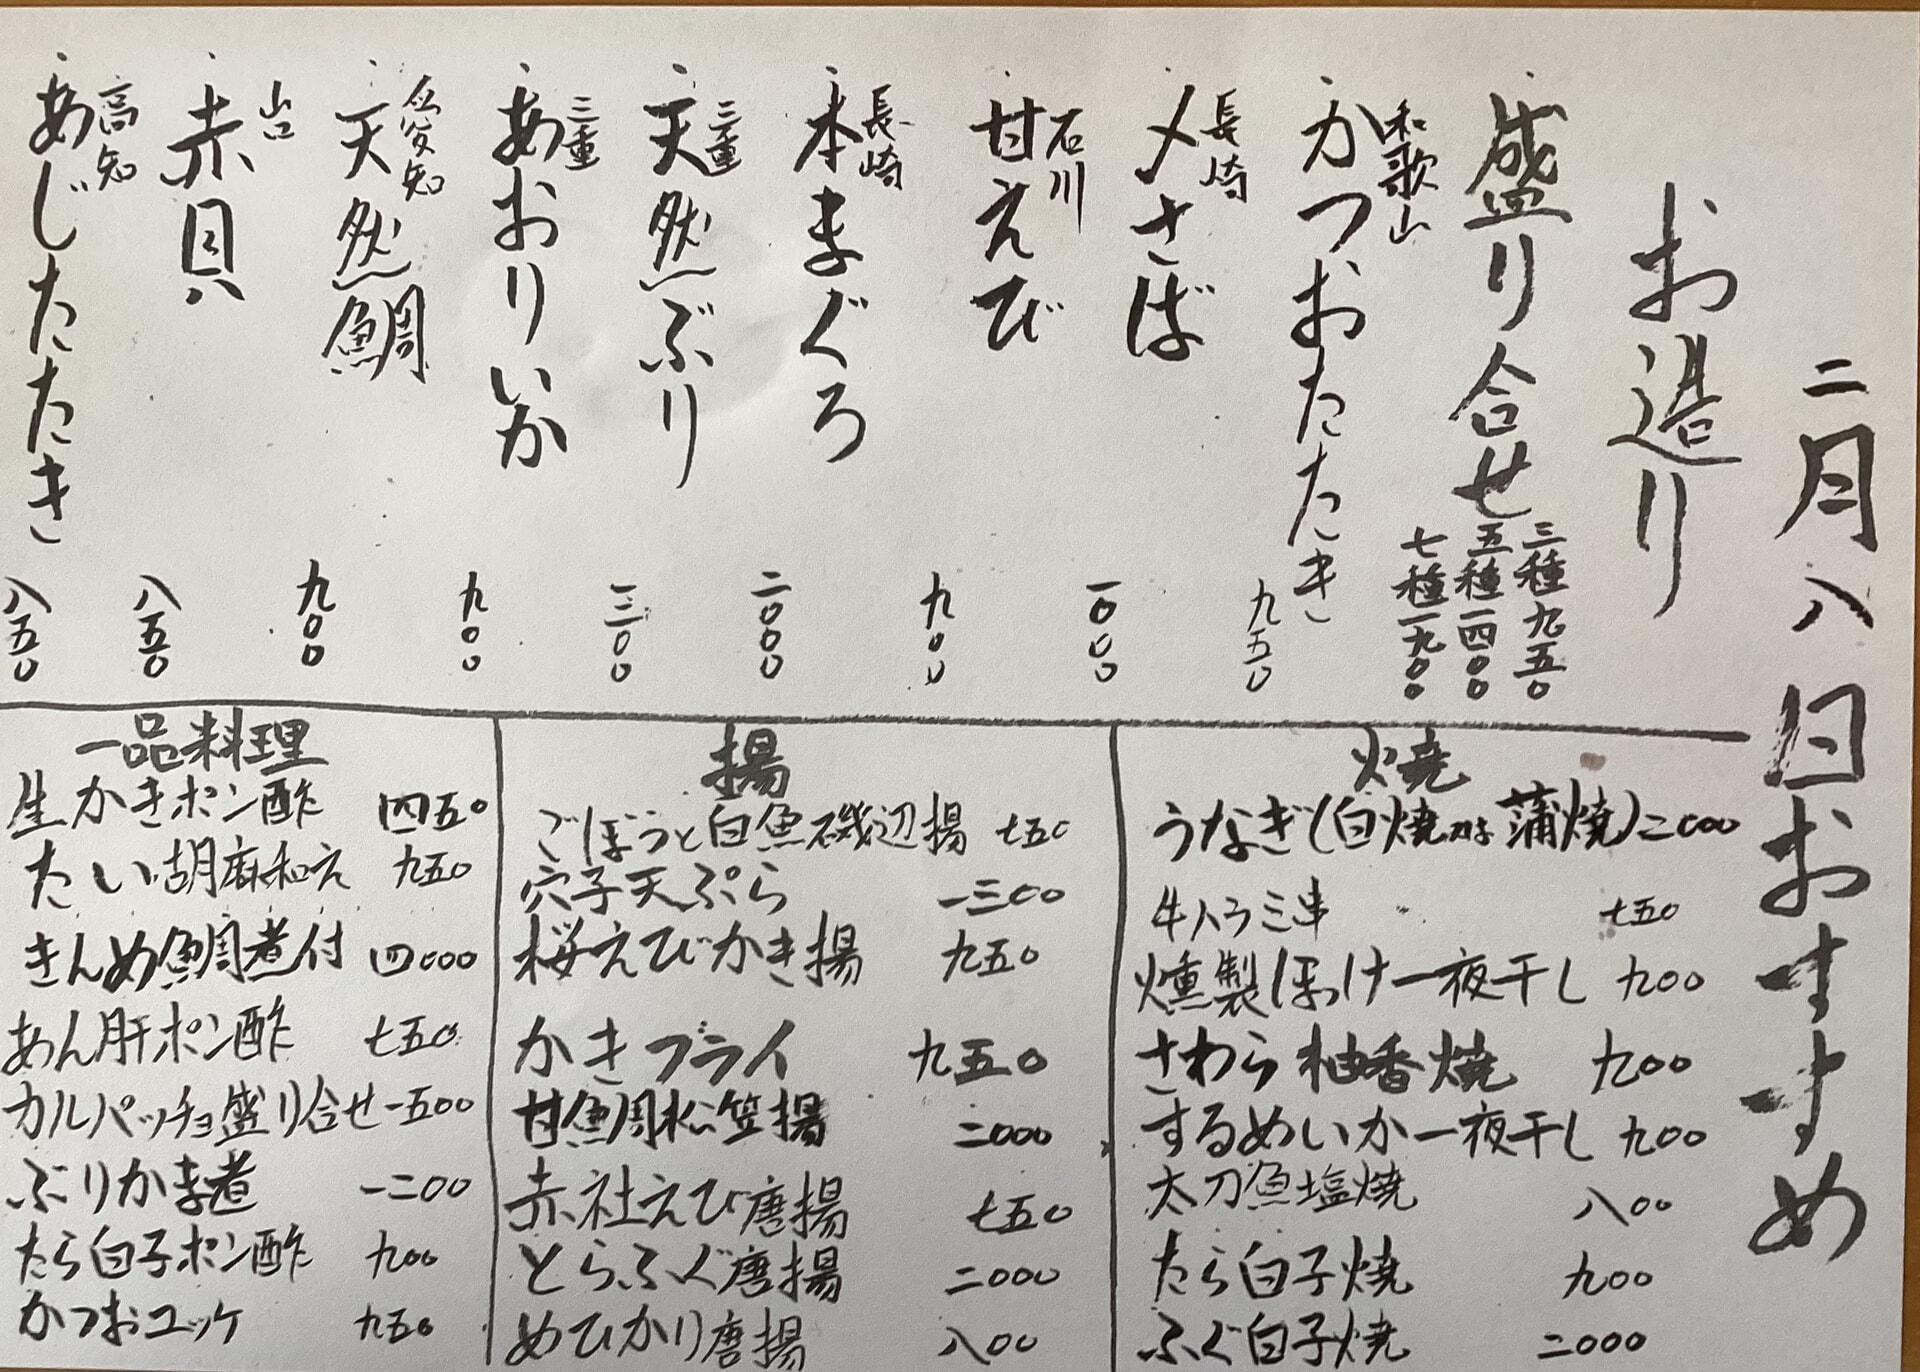 二月八日おすすめ
お造り
盛り合せ
三種九五〇
五種一四〇〇
七種一九〇〇
和歌山
かつおたたき 九五〇
長崎
〆さば 一〇〇〇
石川
甘えび 九〇〇
長崎
本まぐろ 二〇〇〇
三重
天然ぶり 一三〇〇
三重
あおりいか 九〇〇
愛知
天然鯛 九〇〇
山口
赤貝 八五〇
高知
あじたたき 八五〇
焼
うなぎ(白焼又は蒲焼)二〇〇〇
牛ハラミ串 七五〇
燻製ほっけ一夜干し 九〇〇
さわら柚香焼 九〇〇
するめいか一夜干し 九〇〇
太刀魚塩焼 八〇〇
たら白子焼 九〇〇
ふぐ白子焼 二〇〇〇
揚
ごぼうと白魚磯辺揚 七五〇
穴子天ぷら 一三〇〇
桜えびかき揚 九五〇
かきフライ 九五〇
甘鯛松笠揚 二〇〇〇
赤社えび唐揚 七五〇
とらふぐ唐揚 二〇〇〇
めひかり唐揚 八〇〇
一品料理
生かきポン酢 四五〇
たい胡麻和え 九五〇
きんめ鯛煮付 四〇〇〇
あん肝ポン酢 七五〇
カルパッチョ盛り合せ 一五〇〇
ぶりかま煮 一二〇〇
たら白子ポン酢 九〇〇
かつおユッケ 九五〇